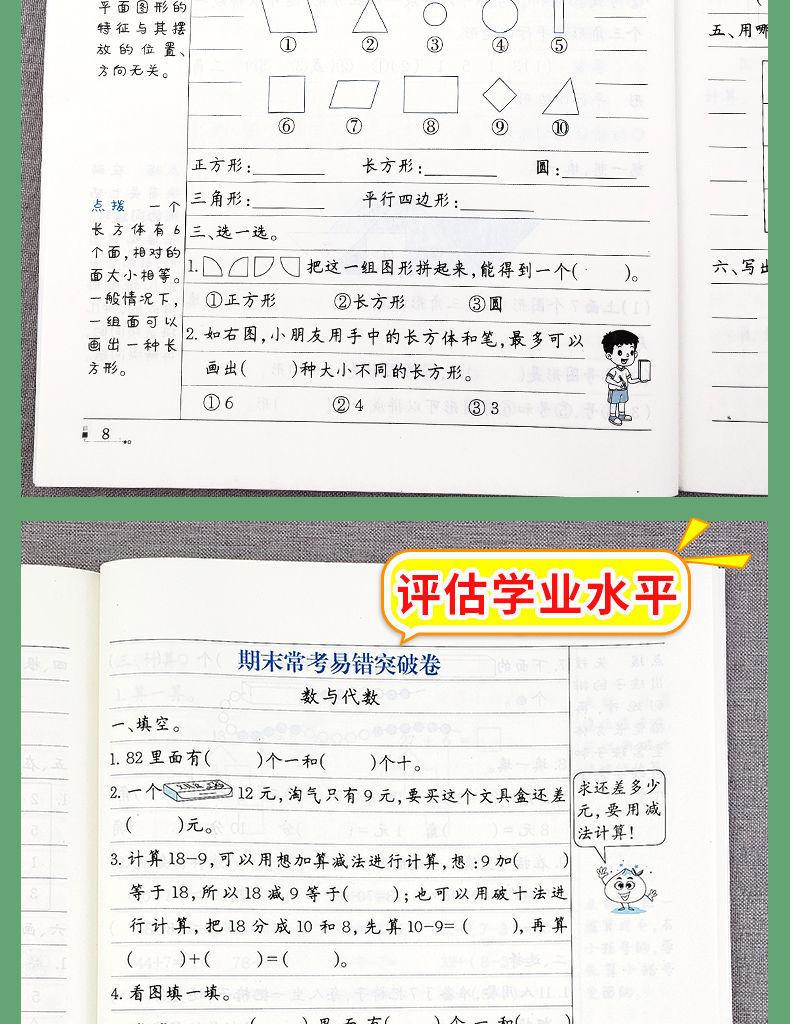 平面图形的
特征与其摆
放的位置、
方向无关。
① ② ③ ④ ⑤
⑥ ⑦ ⑧ ⑨ ⑩
正方形: 长方形: 圆:
三角形: 平行四边形:
点拨 一个
长方体有6
个面,相对的
面大小相等。
一般情况下,
一组面可以
画出一种长
方形。
三、选一选。
1. 把这一组图形拼起来,能得到一个( )。
①正方形 ②长方形 ③圆
2. 如右图,小朋友用手中的长方体和笔,最多可以
画出( )种大小不同的长方形。
①6 ②4 ③3
8
五、用哪
六、写出
评估学业水平
期末常考易错突破卷
数与代数
一、填空。
1. 82里面有( )个一和( )个十。
2. 一个 12元,淘气只有9元,要买这个文具盒还差
( )元。
求还差多少
元,要用减
法计算!
3. 计算18-9,可以用想加算减法进行计算,想:9加( )
等于18,所以18减9等于( );也可以用破十法进
行计算,把18分成10和8,先算10-9=( ),再算
( )+( )=( )。
4. 看图填一填。
( )里面有( )个一和(